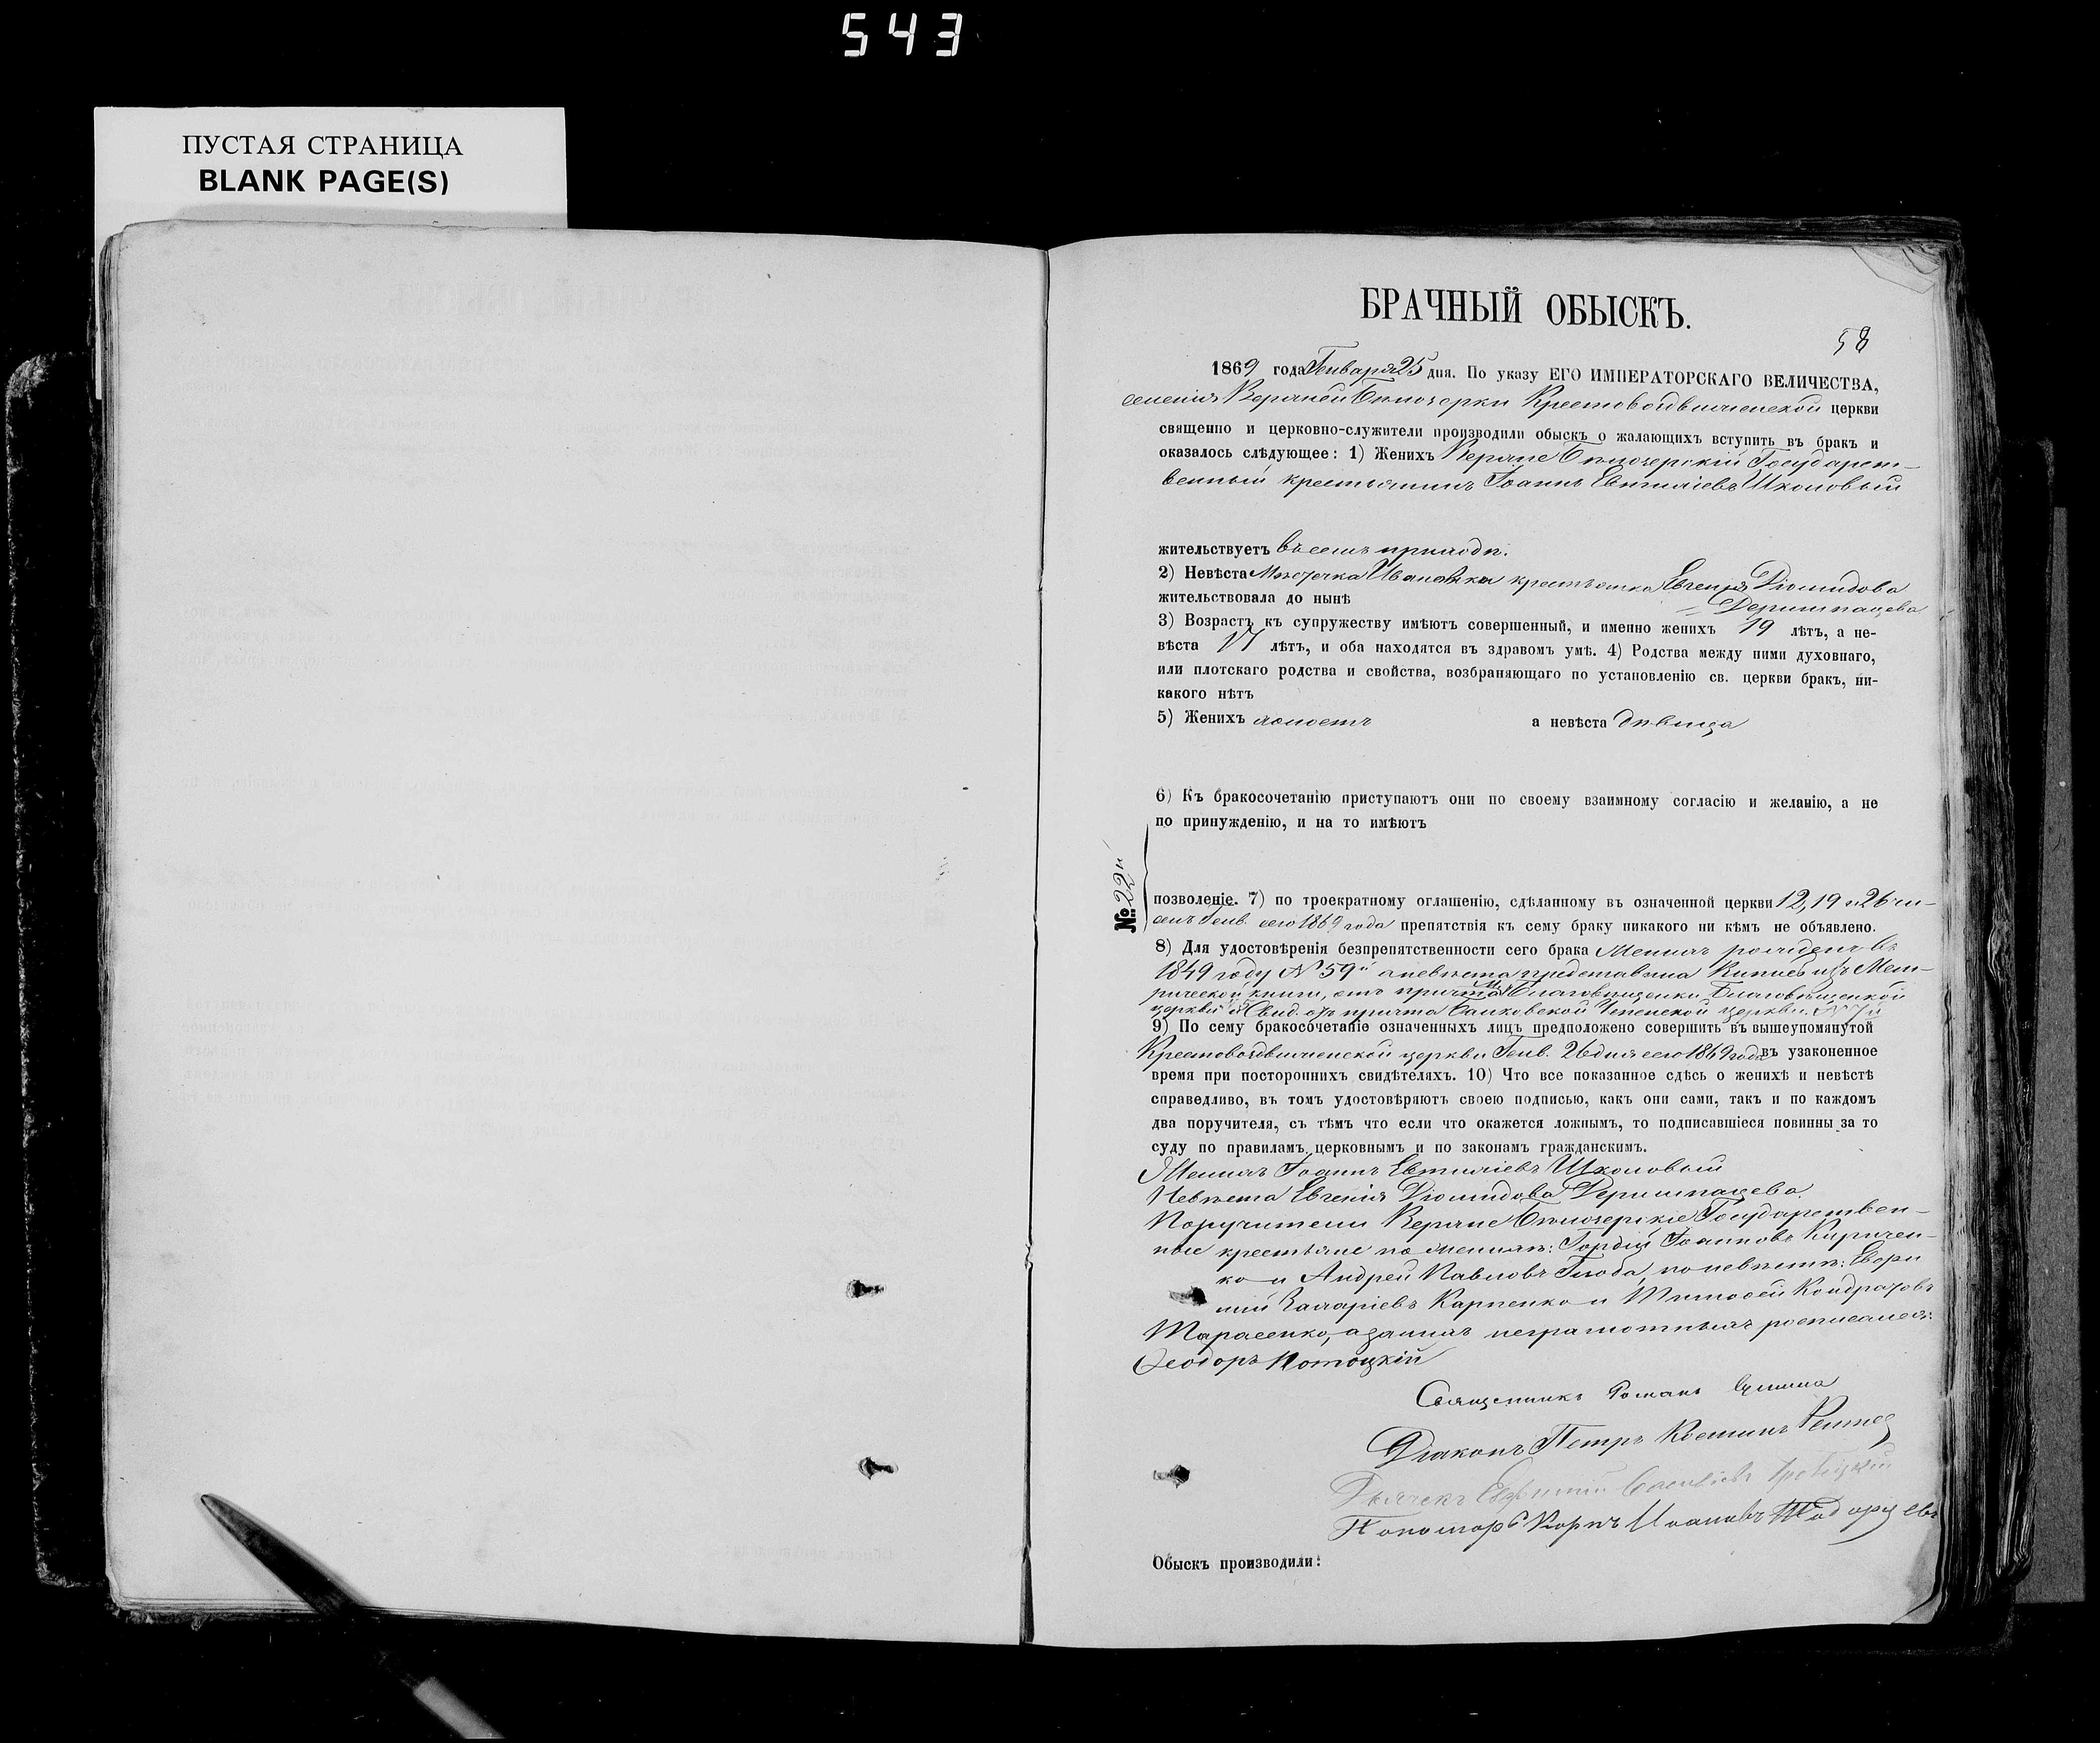 543
ПУСТАЯ СТРАНИЦА
BLANK PAGE(S)
БРАЧНЫЙ ОБЫСКЪ.
58
1869 года Генваря 25 дня. По указу ЕГО ИМПЕРАТОРСКАГО ВЕЛИЧЕСТВА,
селенія Верхней Бѣлозерки Крестовоздвиженской церкви
священно и церковно-служители производили обыскъ о жалающихъ вступить въ бракъ и
оказалось слѣдующее: 1) Женихъ Верхне Бѣлозерскій Государст-
венный крестьянинъ Іоаннъ Евтихіевъ Школовый
жительствуетъ въ семъ приходѣ.
2) Невѣста Мѣстечка Ивановки крестьянка Евгенія Діомидова
жительствовала до нынѣ
3) Возрастъ къ супружеству имѣютъ совершенный, и именно женихъ 19 лѣтъ, а не-
вѣста 17 лѣтъ, и оба находятся въ здравомъ умѣ. 4) Родства между ними духовнаго,
или плотскаго родства и свойства, возбраняющаго по установленію св. церкви бракъ, ни-
какого нѣтъ
5) Женихъ холостъ а невѣста дѣвица
6) Къ бракосочетанію приступаютъ они по своему взаимному согласію и желанію, а не
по принужденію, и на то имѣютъ
№: 22й
позволеніе. 7) по троекратному оглашенію, сдѣланному въ означенной церкви 12, 19 и 26 чи-
селъ Генв. сего 1869 года препятствія къ сему браку никакого ни кѣмъ не объявлено.
8) Для удостовѣренія безпрепятственности сего брака Женихъ рожденъ въ
1849 году № 59й а невѣста представила из Мет-
рической книги, отъ причта Благовѣщенки Благовѣщенской
церкви и Свид. отъ причта Успенской церкви
9) По сему бракосочетаніе означенныхъ лицъ предположено совершить въ вышеупомянутой
Крестовоздвиженской церкви Генв. 26 дня сего 1869 года въ узаконенное
время при постороннихъ свидѣтеляхъ. 10) Что все показанное сдѣсь о женихѣ и невѣстѣ
справедливо, въ томъ удостовѣряютъ своею подписью, какъ они сами, такъ и по каждомъ
два поручителя, съ тѣмъ что если что окажется ложнымъ, то подписавшіеся повинны за то
суду по правиламъ церковнымъ и по законамъ гражданскимъ.
Женихъ Іоаннъ Евтихіевъ Школовый
Невѣста Евгенія Діомидова
Поручители Верхне Бѣлозерскіе Государствен-
ные крестьяне по женихѣ: Гордій Іоанновъ Киричен-
ко и Андрей Павловъ по невѣстѣ: Евфи
мій Захаріевъ Карпенко и Тимофей Кондратовъ
Тарасенко, а за нихъ неграмотныхъ росписался:
Феодоръ Потоцкій
Священникъ Романъ
Діаконъ Петръ
Дьячекъ Евфимий
Пономарь
Обыскъ производили: